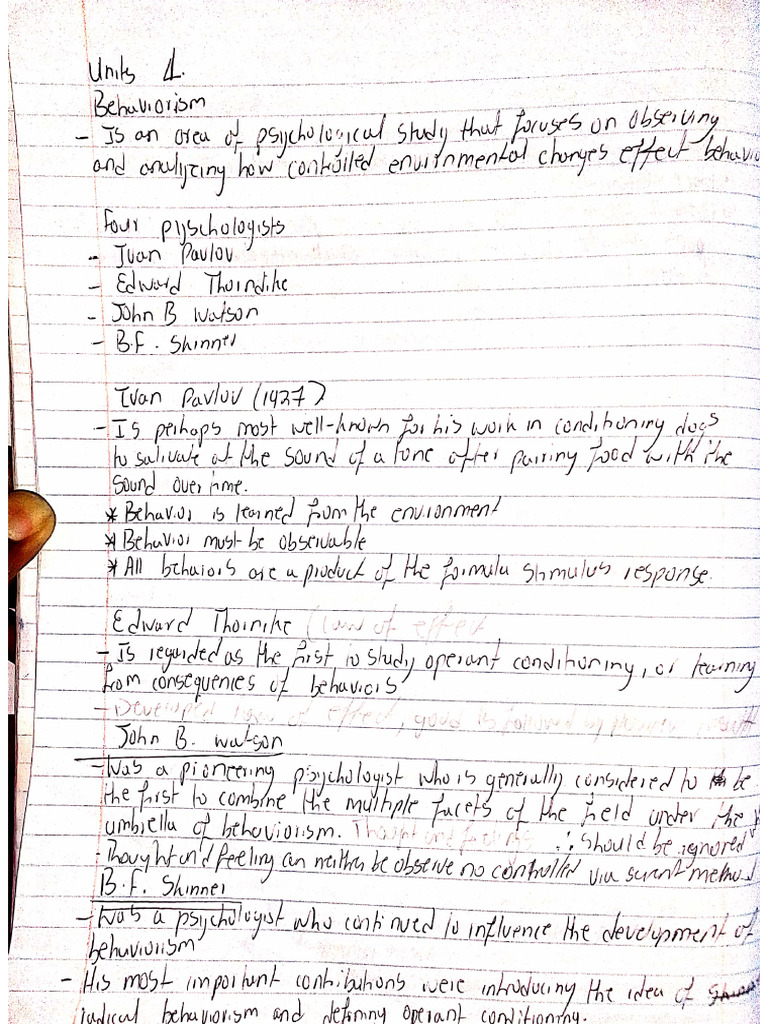 Units 1.
Behaviorism
- Is an area of psychological study that focuses on observing
and analyzing how controlled environmental changes effect behavio
Four pyschologists
- Ivan Pavlov
- Edward Thorndike
- John B Watson
- B.F. Skinner
Ivan Pavlov (1927)
- Is perhaps most well-known for his work in conditioning dogs
to salivate at the sound of a tone after pairing food with the
sound over time.
* Behavior is learned from the environment
* Behavior must be observable
* All behaiors are a product of the formula stimulus response.
Edward Thornike (law of effect
- Is regarded as the first to study operant conditioning, or learning
from consequences of behaviors
- Developed law of effect, good is followed by
John B. Watson
- Was a pioneering psychologist who is generally considered to be
the first to combine the multiple facets of the field under the
umbrella of behaviorism. Thought and feelings ∴ should be ignored
- Thought and feeling can neither be observe no controlled via method
B.F. Skinner
- Was a psychologist who continued to influence the development of
behaviorism
- His most important contributions were introducing the idea of
radical behaviorism and defining operant conditioning.